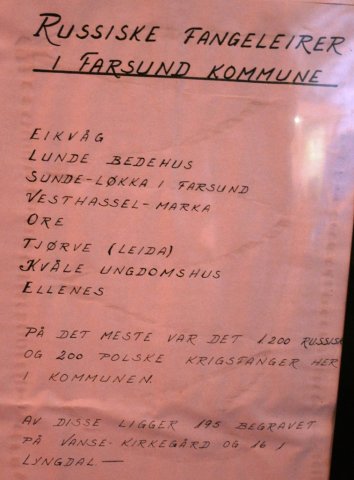 RUSSISKE FANGELEIRER
I FARSUND KOMMUNE
EIKVÅG
LUNDE BEDEHUS
SUNDE-LØKKA I FARSUND
VESTHASSEL-MARKA
ORE
TJØRVE (LEIDA)
KVÅLE UNGDOMSHUS
ELLENES
PÅ DET MESTE VAR DET 1.200 RUSSISKE
OG 200 POLSKE KRIGSFANGER HER
I KOMMUNEN.
AV DISSE LIGGER 195 BEGRAVET
PÅ VANSE-KIRKEGÅRD OG 16 I
LYNGDAL —